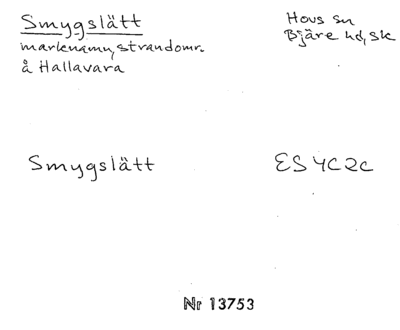 Smygslätt
marknamn, strandomr.
å Hallavara
Hovs sn
Bjäre hd, Sk
Smygslätt
ES 4C2c
Nr 13753